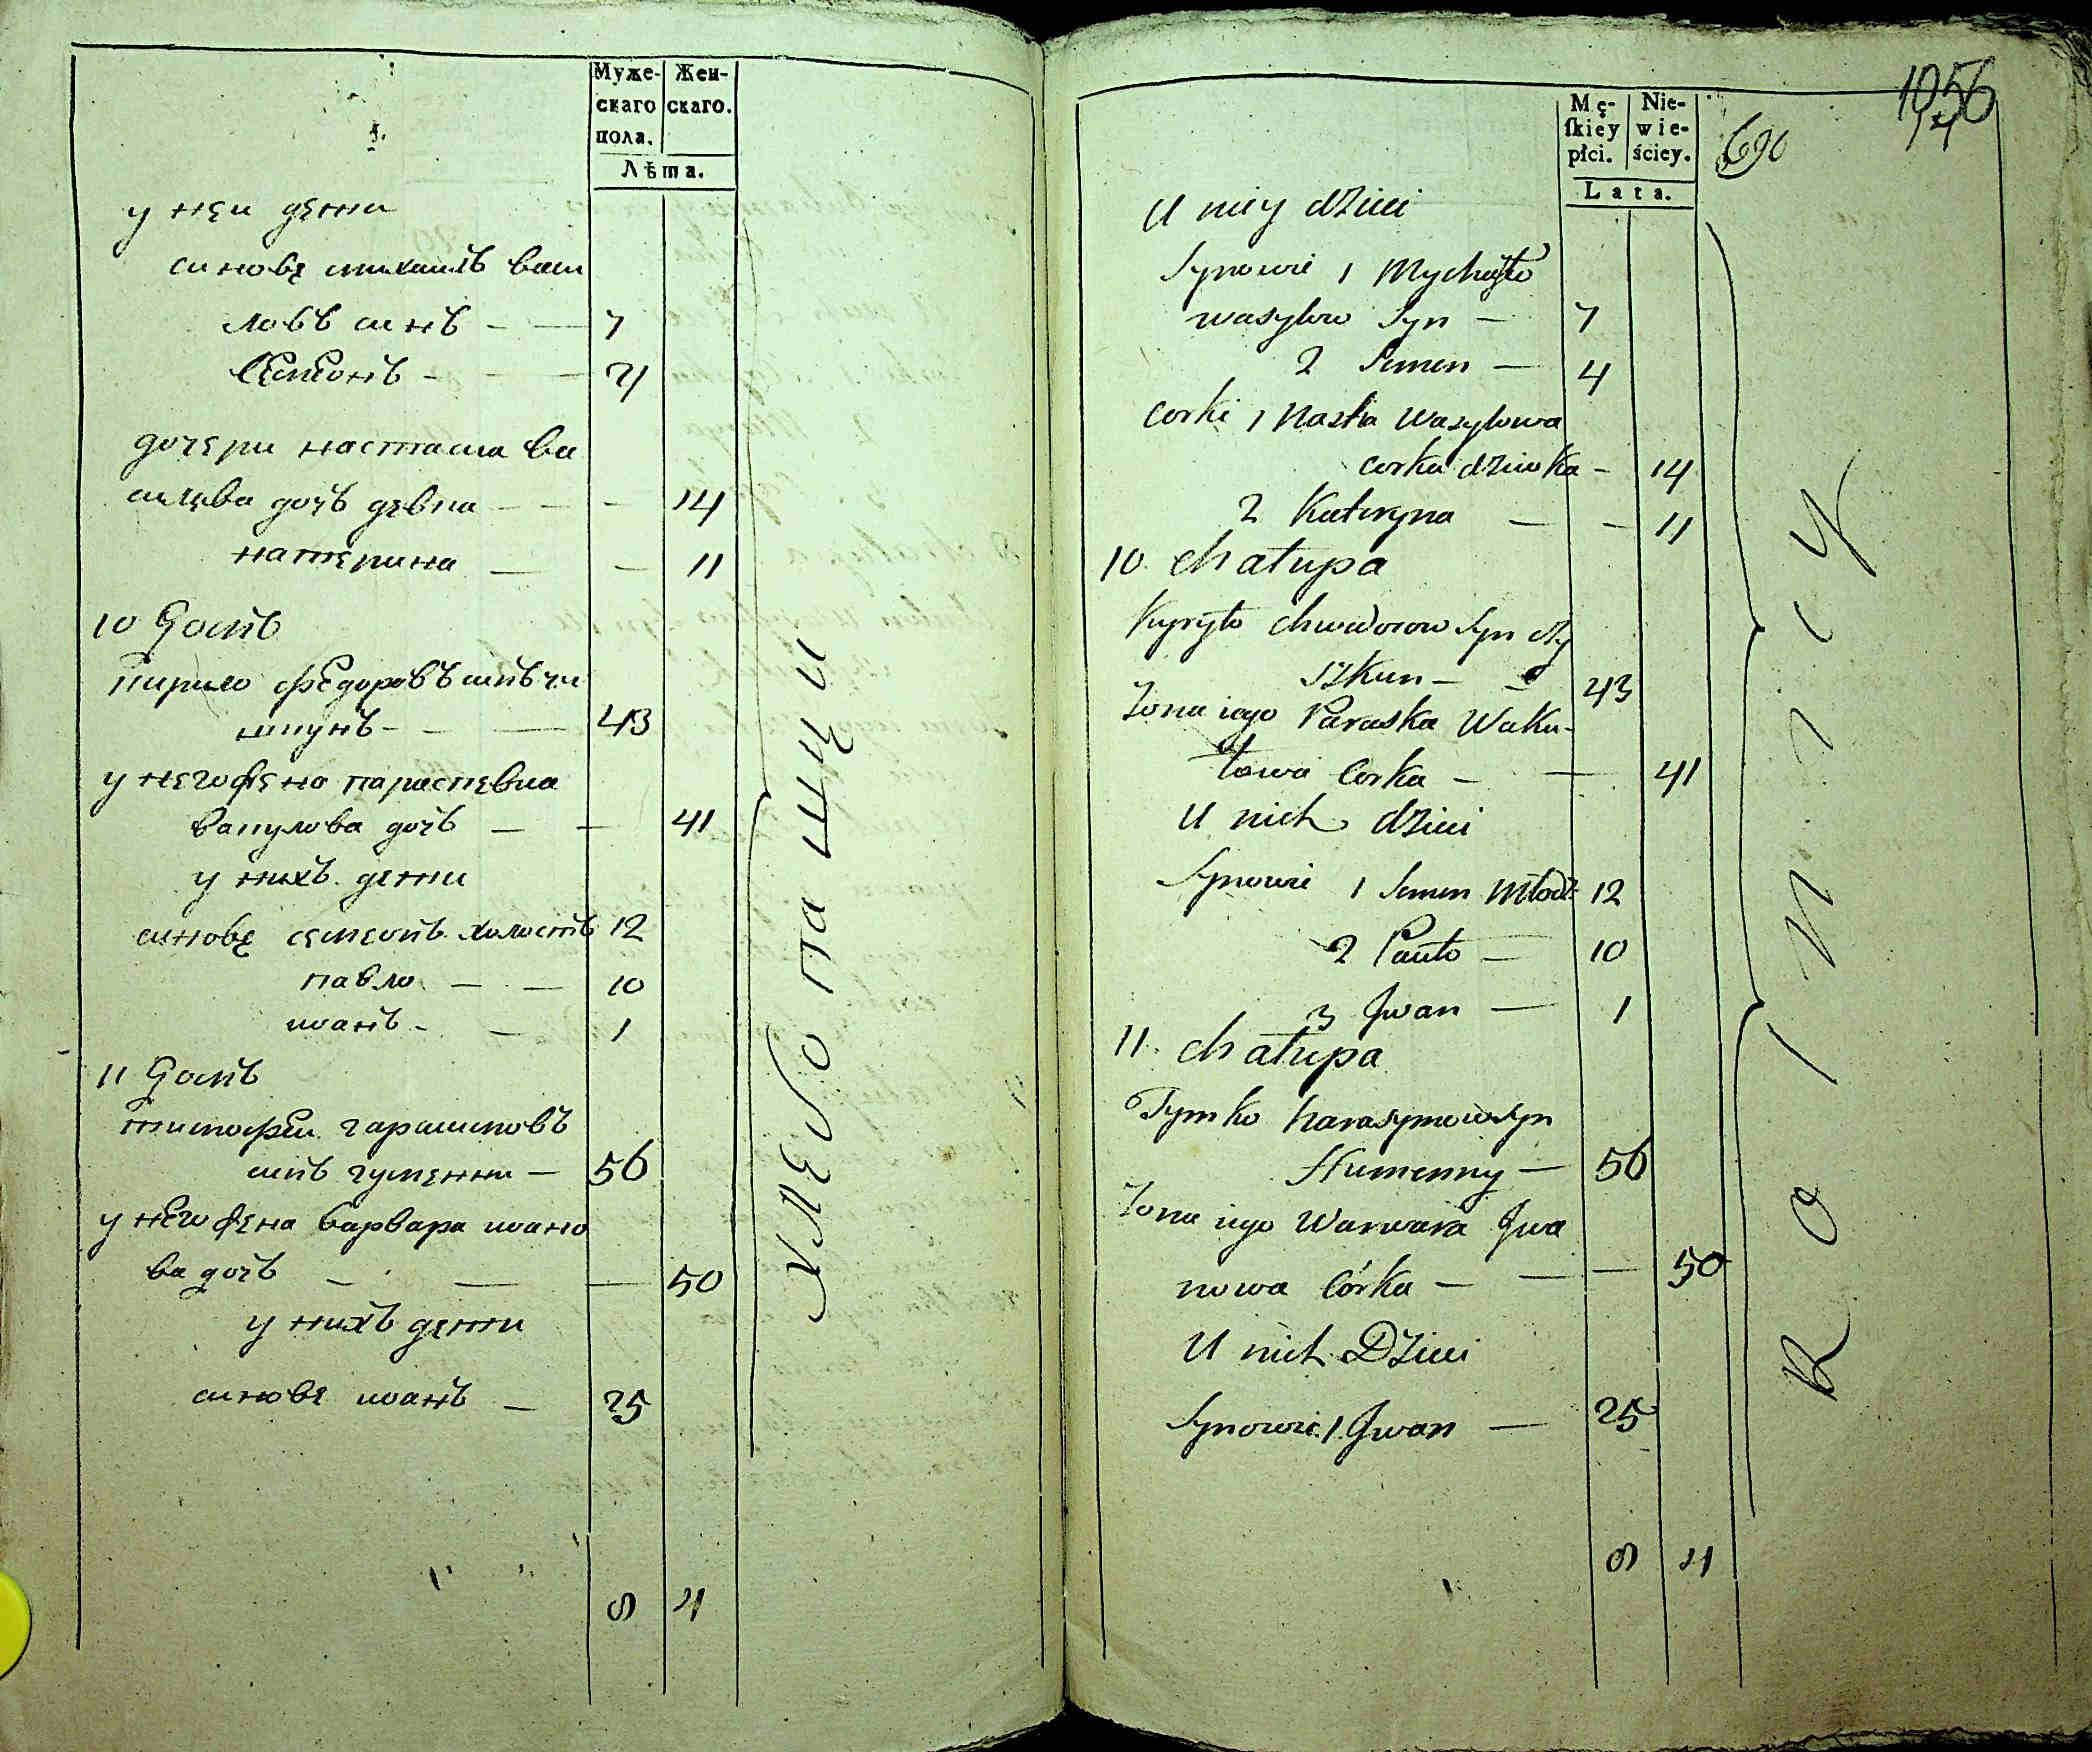 Муже-
скаго
пола.
Жен-
скаго.
Лѣта.
у неи дети
синове михаилъ васи
ловъ синъ — — 7
Семеонъ - — 4
дочери настасиа ва
силева дочъ девка — - — 14
катерина — — 11
10 Домъ
кирило федоровъ синъ чи
шкунъ - - — 43
у него жена параскевиа
вакулова дочъ — — 41
у нихъ дети
синове семеонъ холостъ 12
павло — — 10
иоанъ - — 1
11 Домъ
тимофеи гарасимовъ
синъ гуменни — 56
у него жена варвара иоано
ва дочъ — — — 50
у нихъ дети
синове иоанъ — 25
8 4
хлебопашци
1056
690
Mę-
skiey
płci.
Nie-
wie-
ściey.
Lata.
U niey dzieci
Synowie 1 Mychayło
wasylow Syn — 7
2 Semen — 4
corki 1 Nastia Wasylowa
corka dziwka — 14
2 Kateryna — — 11
10. chałupa
Kyryło chwedorow Syn Czy
szkun — — 43
Żona iego Paraska Waku-
łowa Corka — — 41
U nich dzieci
Synowie 1 Semen Młodz: 12
2 Pauło — 10
3 Jwan — 1
11. chałupa
Tymko harasymow Syn
Humenny — 56
Żona iego Warwara Jwa
nowa Córka — — — 50
U nich Dzieci
Synowie 1 Jwan — 25
8 4
Rolnicy